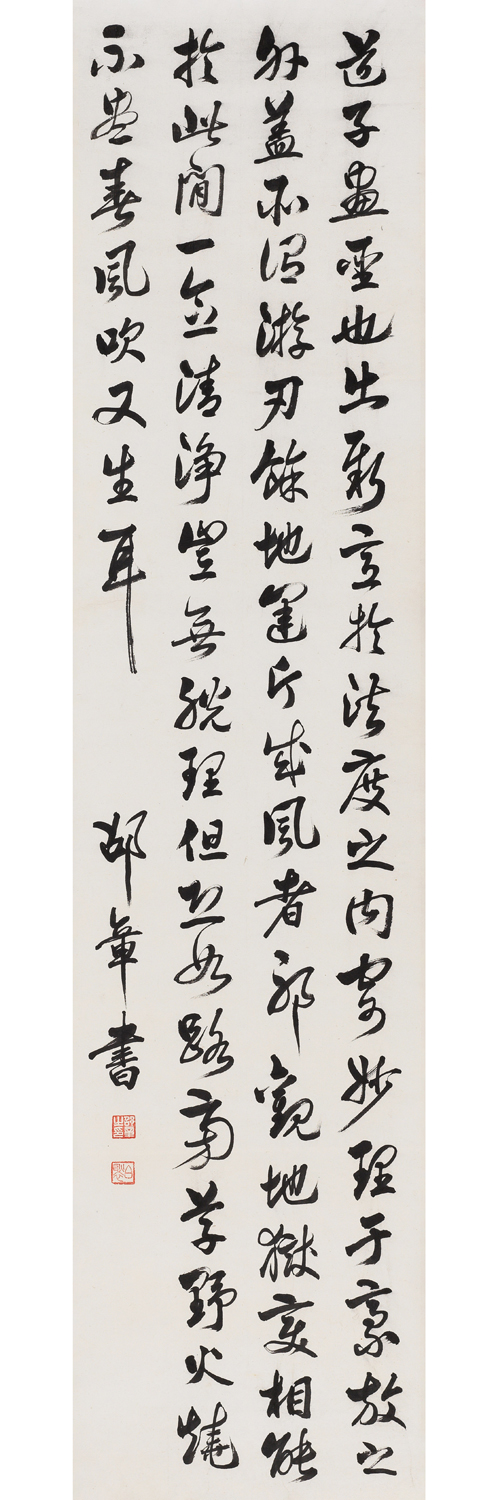 道子畫聖也出新意於法度之内寄妙理于豪放之
外蓋所謂游刃餘地運斤成風者邪觀地獄變相能
於此間一念清淨豈無脫理但恐如路旁草野火燒
不盡春風吹又生耳
邵章書